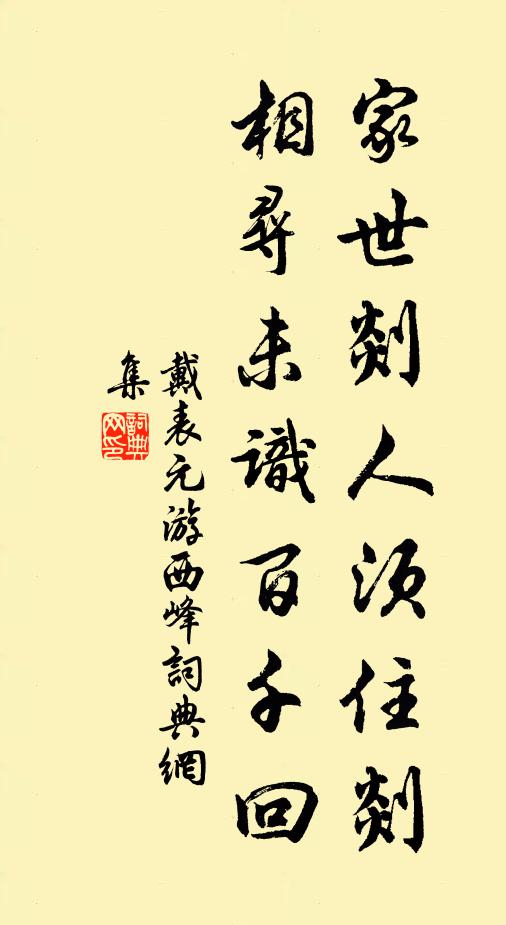 家世剡人須住剡
相尋未識百千回
戴表元游西峰詞典網
集
詞典網印